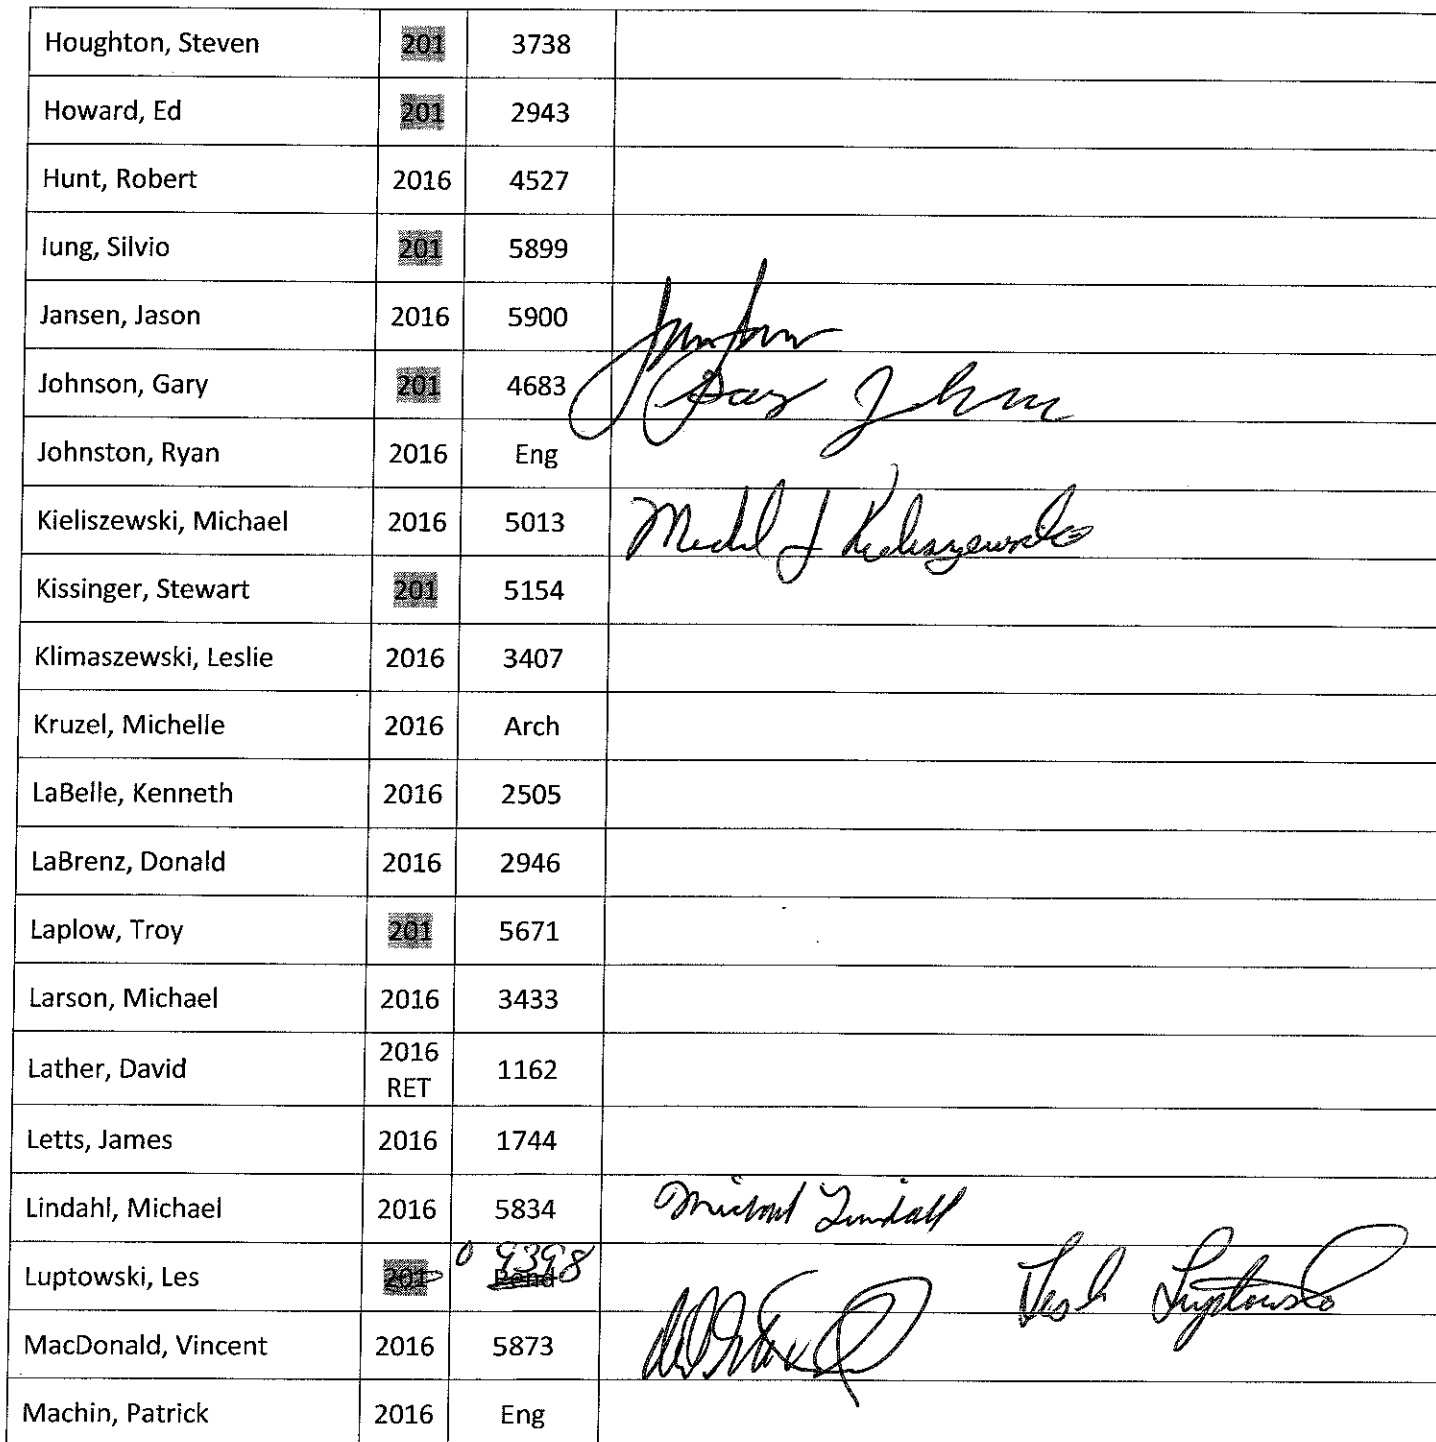 Houghton, Steven 201 3738
Howard, Ed 201 2943
Hunt, Robert 2016 4527
Iung, Silvio 201 5899
Jansen, Jason 2016 5900
Johnson, Gary 201 4683 Gary Johnson
Johnston, Ryan 2016 Eng
Kieliszewski, Michael 2016 5013 Michael J Kieliszewski
Kissinger, Stewart 201 5154
Klimaszewski, Leslie 2016 3407
Kruzel, Michelle 2016 Arch
LaBelle, Kenneth 2016 2505
LaBrenz, Donald 2016 2946
Laplow, Troy 201 5671
Larson, Michael 2016 3433
Lather, David 2016 RET 1162
Letts, James 2016 1744
Lindahl, Michael 2016 5834 Michael Lindahl
Luptowski, Les 201 Pend 9398 Luptowski
MacDonald, Vincent 2016 5873
Machin, Patrick 2016 Eng